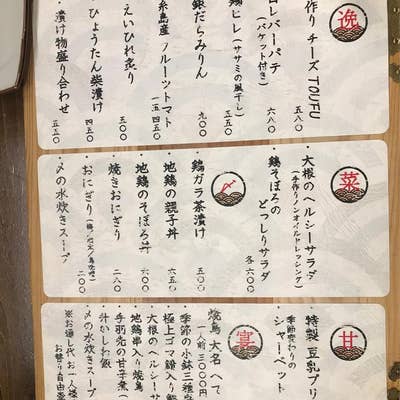 逸
作り チーズ TOUFU
五八〇
レバーパテ
(バケット付き)
六八〇
鶏ヒレ(ササミの風干し)
三五〇
銀だらみりん
九〇〇
糸島産 フルーツトマト
一五 四五〇
えいひれ炙り
五〇〇
ひょうたん柴漬け
四五〇
漬け物盛り合わせ
五五〇
菜
大根のヘルシーサラダ
(手作りノンオイルドレッシング)
鶏そぼろの
どっしりサラダ
各六〇〇
〆
鶏ガラ茶漬け
五〇〇
地鶏の親子丼
六五〇
地鶏のそぼろ丼
六〇〇
焼きおにぎり
二八〇
おにぎり
〆の水炊きスープ
二〇〇
甘
特製 豆乳プリ
季節変わりの
シャーベット
宴
焼鳥 大名へて
一人前 三〇〇〇円
季節の小鉢三種
極上ゴマ鯖入り
大根のヘルシーサ
地鶏串入り焼鳥
手羽先の甘辛煮
汁かしわ飯
〆の水炊きスープ
※お通し代 お一人様
お替り自由